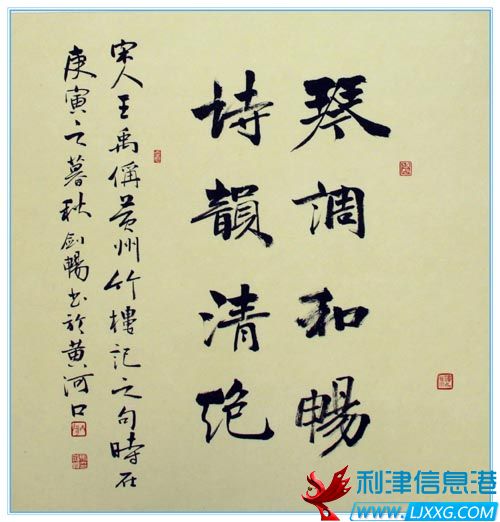 琴调和暢
诗韻清絶
宋人王禹偁黄州竹樓記之句時在
庚寅之暮秋剑暢书於黄河口
利津信息港
WWW.LJXXG.COM